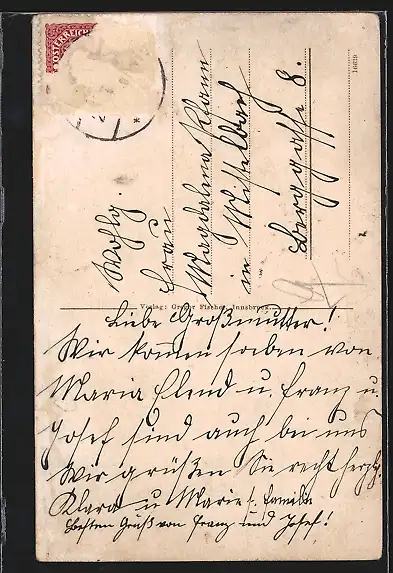 ÖSTERREICH
Wohlg.
Frau
Magdalena Klaun
in Mistelbach
Berggasse 8.
16639
Verlag: Gregor Fischer, Innsbruck
Liebe Großmutter!
Wir kommen soeben von
Maria Elend u. Franz u.
Josef sind auch bei uns
Wir grüßen Sie recht herzl.
Klara u Marie s. Familie
Besten Gruß von Franz und Josef!